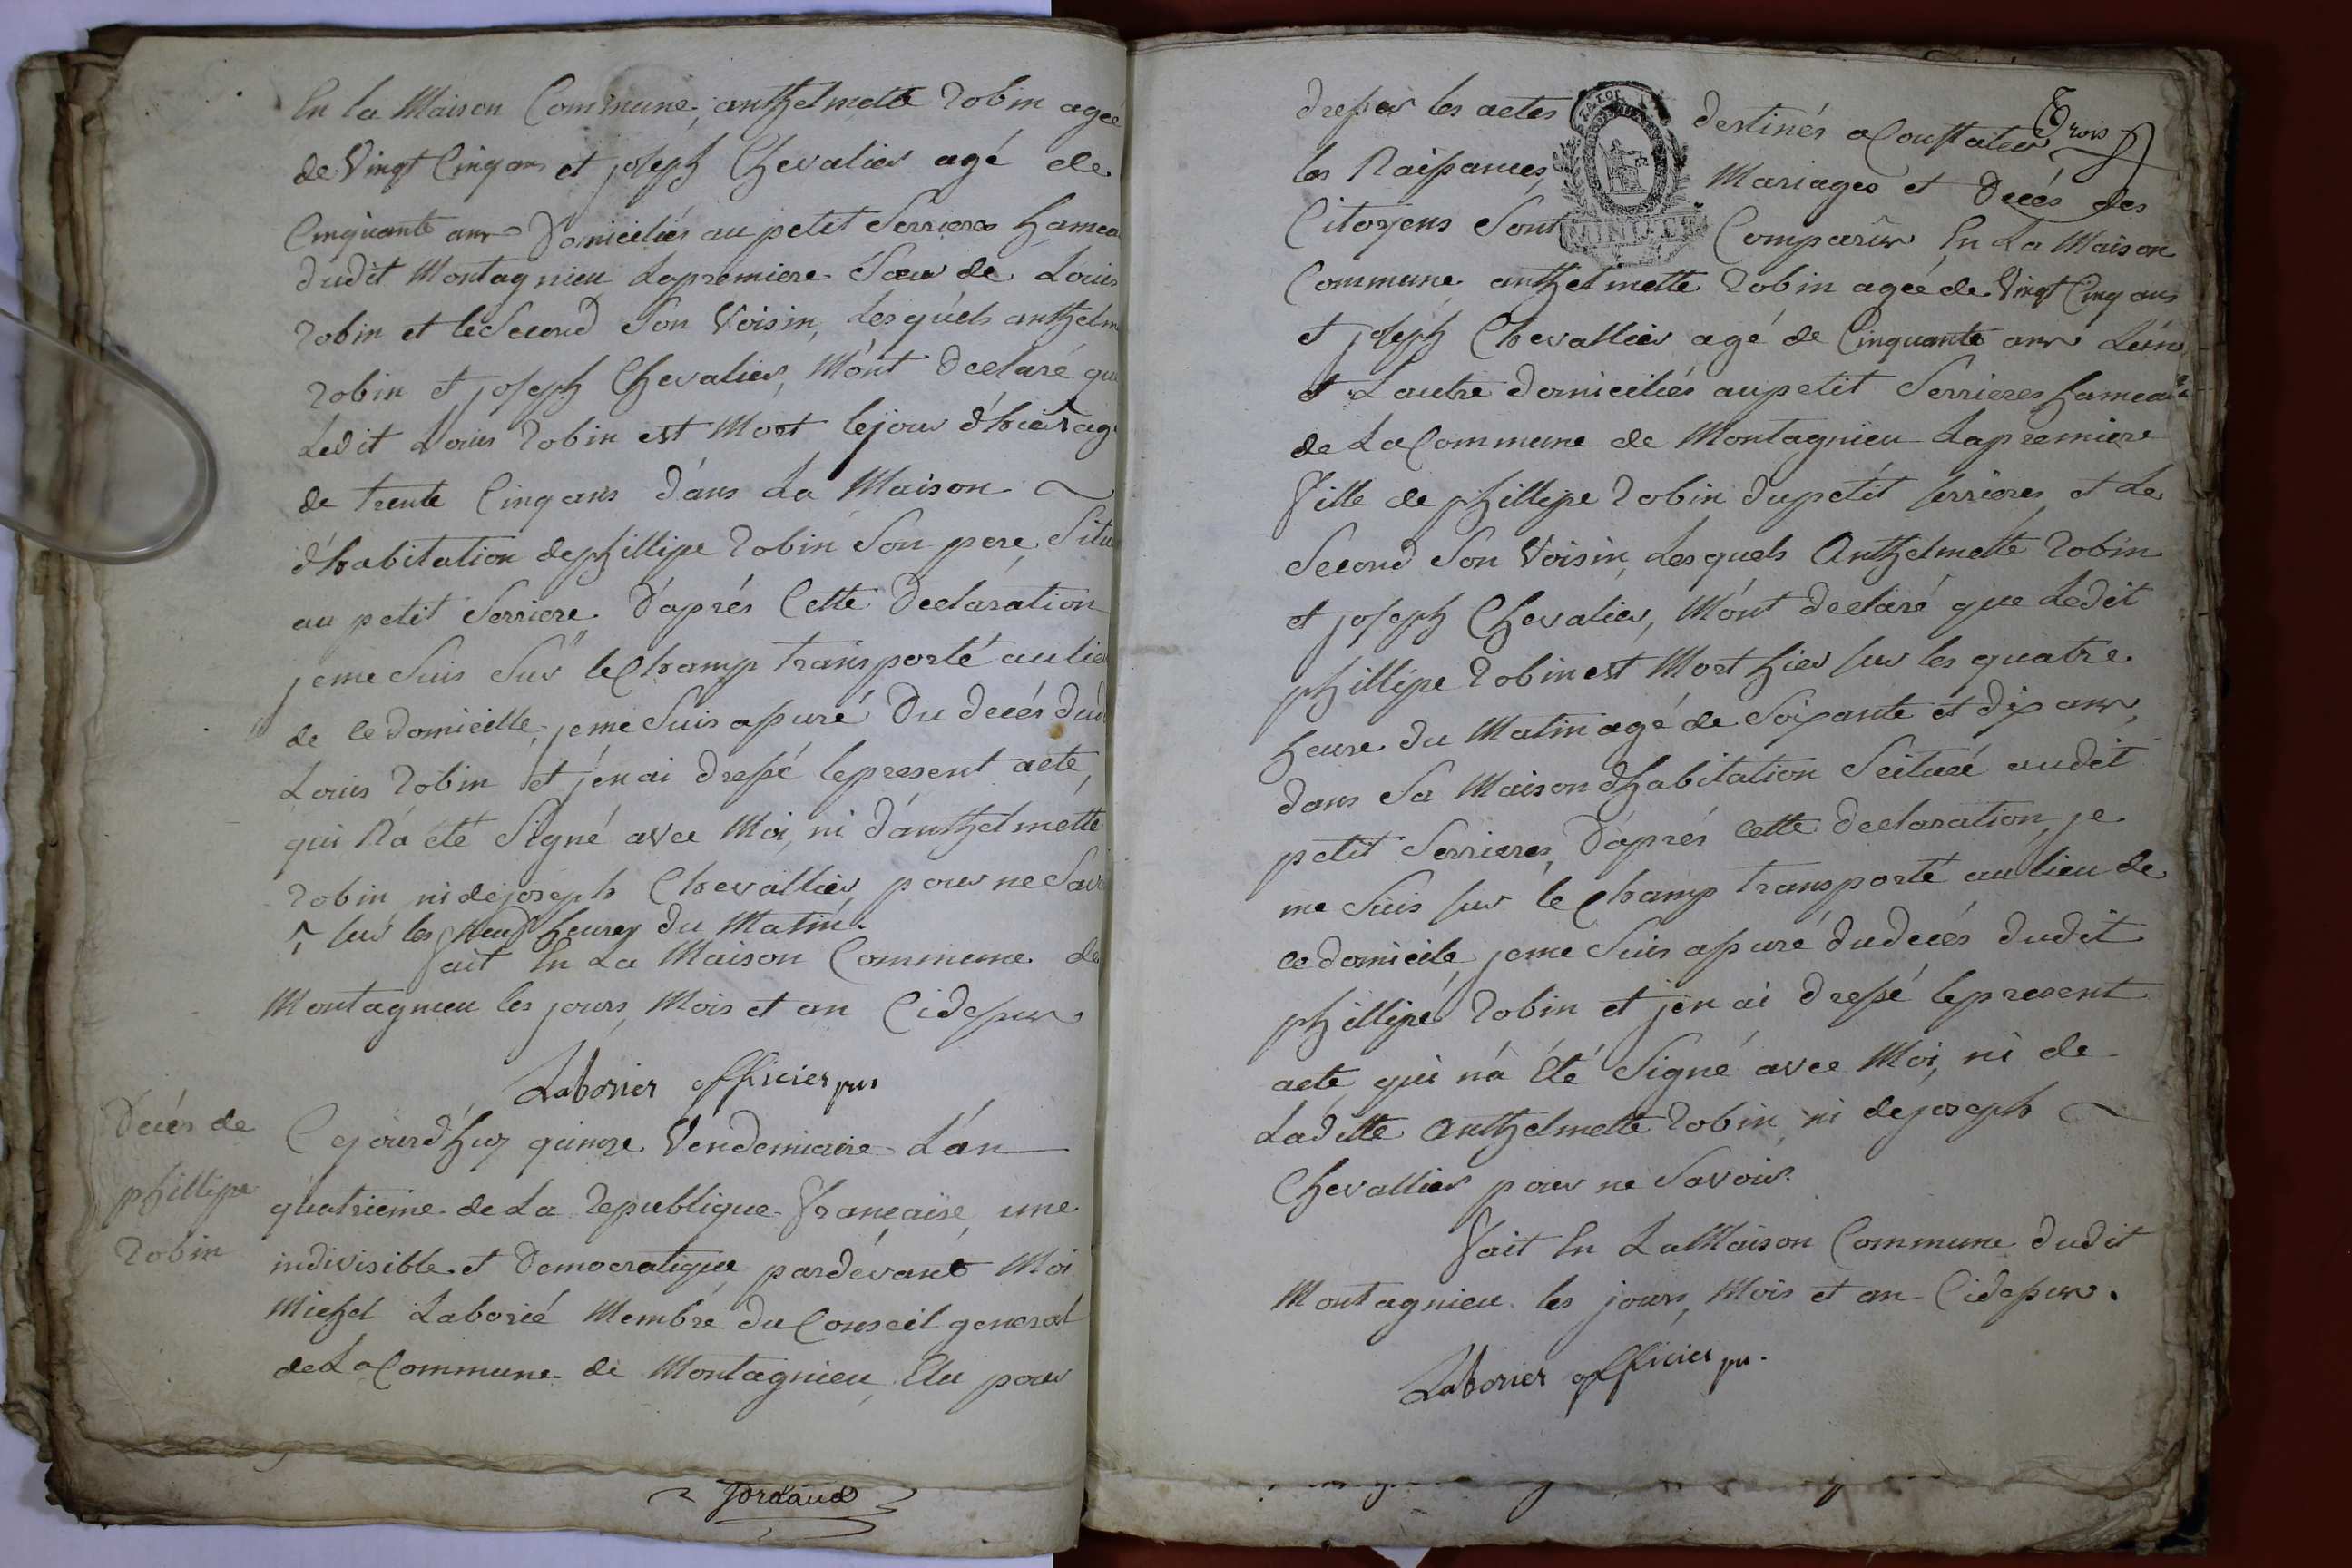 En la Maison Commune, anthelmette Robin agée
de Vingt Cinq ans et joseph Chevalier agé de
Cinquante ans Domiciliés au petit Serrieres hamea
dudit Montagnieu Lapremiere Sœur de Louis
Robin et le Second Son Voisin, Lesquels anthelm
Robin et joseph Chevalier, M'ont Declaré que
Ledit Louis Robin est Mort le jour d'hier ag
de trente Cinq ans dans La Maison
d'habitation de phillipe Robin Son pere, Situ
au petit Serriere. D'aprés Cette Declaration
je me Suis Sur le Champ transporté au lieu
de ce domicille, je me Suis assuré Du decés dud
Louis Robin et j'en ai dressé le present acte,
qui N'a été Signé avec Moi, ni d'anthelmette
Robin ni de joseph Chevallier pour ne Savoi
sur les Neuf heures du Matin.
fait En La Maison Commune de
Montagnieu les jours, Mois et an Cidessus
Laborier officier pu
Decés de
phillipe
Robin
Cejourd'huy quinze Vendemiaire L'an
quatrieme de La Republique francaise, une
indivisible et Democratique pardevant Moi
Michel Laborié Membre du Conseil general
de La Commune de Montagnieu, Elu pour
Jordand
Trois
dresser les actes destinés a Constater
les Naissances, Mariages et Decés des
Citoyens Sont Comparus En La Maison
Commune anthelmette Robin agée de Vingt Cinq ans
et joseph Chevallier agé de Cinquante ans L'un
et L'autre domiciliés au petit Serrieres hameau
de La Commune de Montagnieu Lapremiere
fille de phillipe Robin du petit serrieres et Le
Second Son Voisin, Lesquels Anthelmette Robin
et joseph Chevalier, M'ont declaré que Ledit
phillipe Robin est Mort hier sur les quatre
heure du Matin agé de Soixante et dix ans,
dans Sa Maison d'habitation Scituée audit
petit Serrieres, D'aprés Cette declaration, je
me Suis sur le Champ transporté au lieu de
ce domicile, je me Suis assuré du decés dudit
phillipe Robin et j'en ai dressé le present
acte, qui n'a Eté Signé avec Moi, ni de
Laditte Anthelmette Robin ni de joseph
Chevallier pour ne Savoir.
fait En La Maison Commune dudit
Montagnieu les jours, Mois et an Cidessus.
Laborier officier pu.